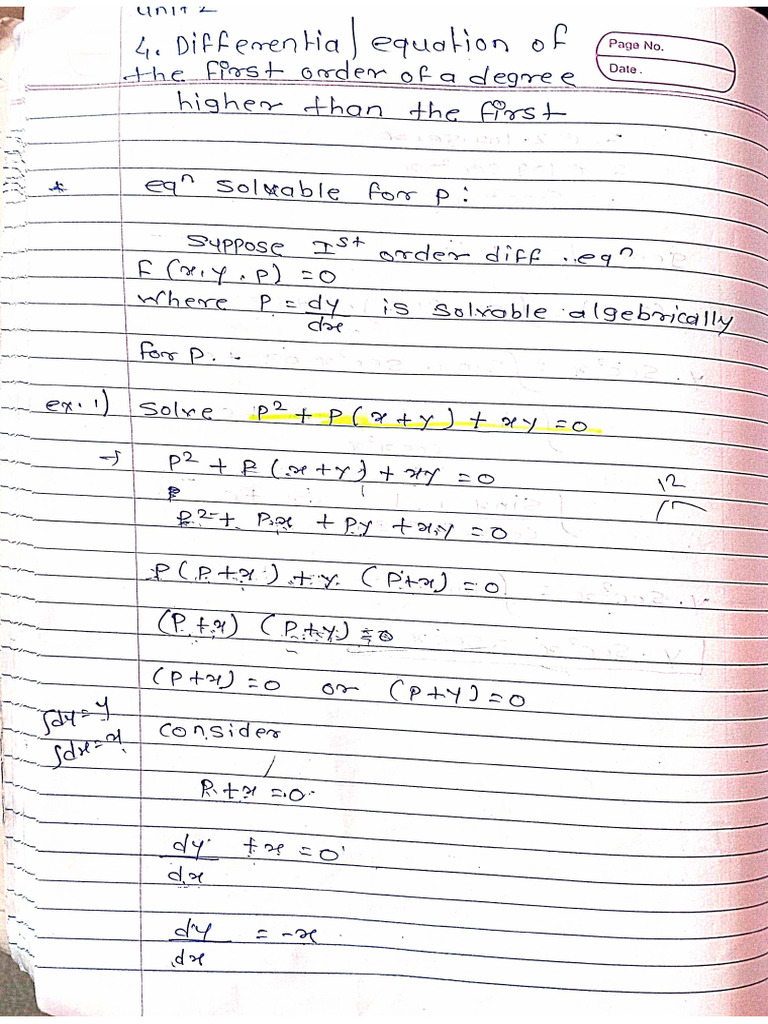 UNIT 2
4. Differential equation of
the first order of a degree
higher than the first
Page No.
Date.
* eqⁿ solvable for p:
Suppose Ist order diff. eqⁿ
F(x, y, p) = 0
where P = dy/dx is solvable algebrically
for p.
ex. 1) Solve p² + p(x+y) + xy = 0
→ p² + p(x+y) + xy = 0
12
p
p² + px + py + xy = 0
p(p+x) + y(p+x) = 0
(p+x) (p+y) = 0
(p+x) = 0 or (p+y) = 0
∫dy = y
∫dx = x
consider
p + x = 0
dy/dx + x = 0
dy/dx = -x